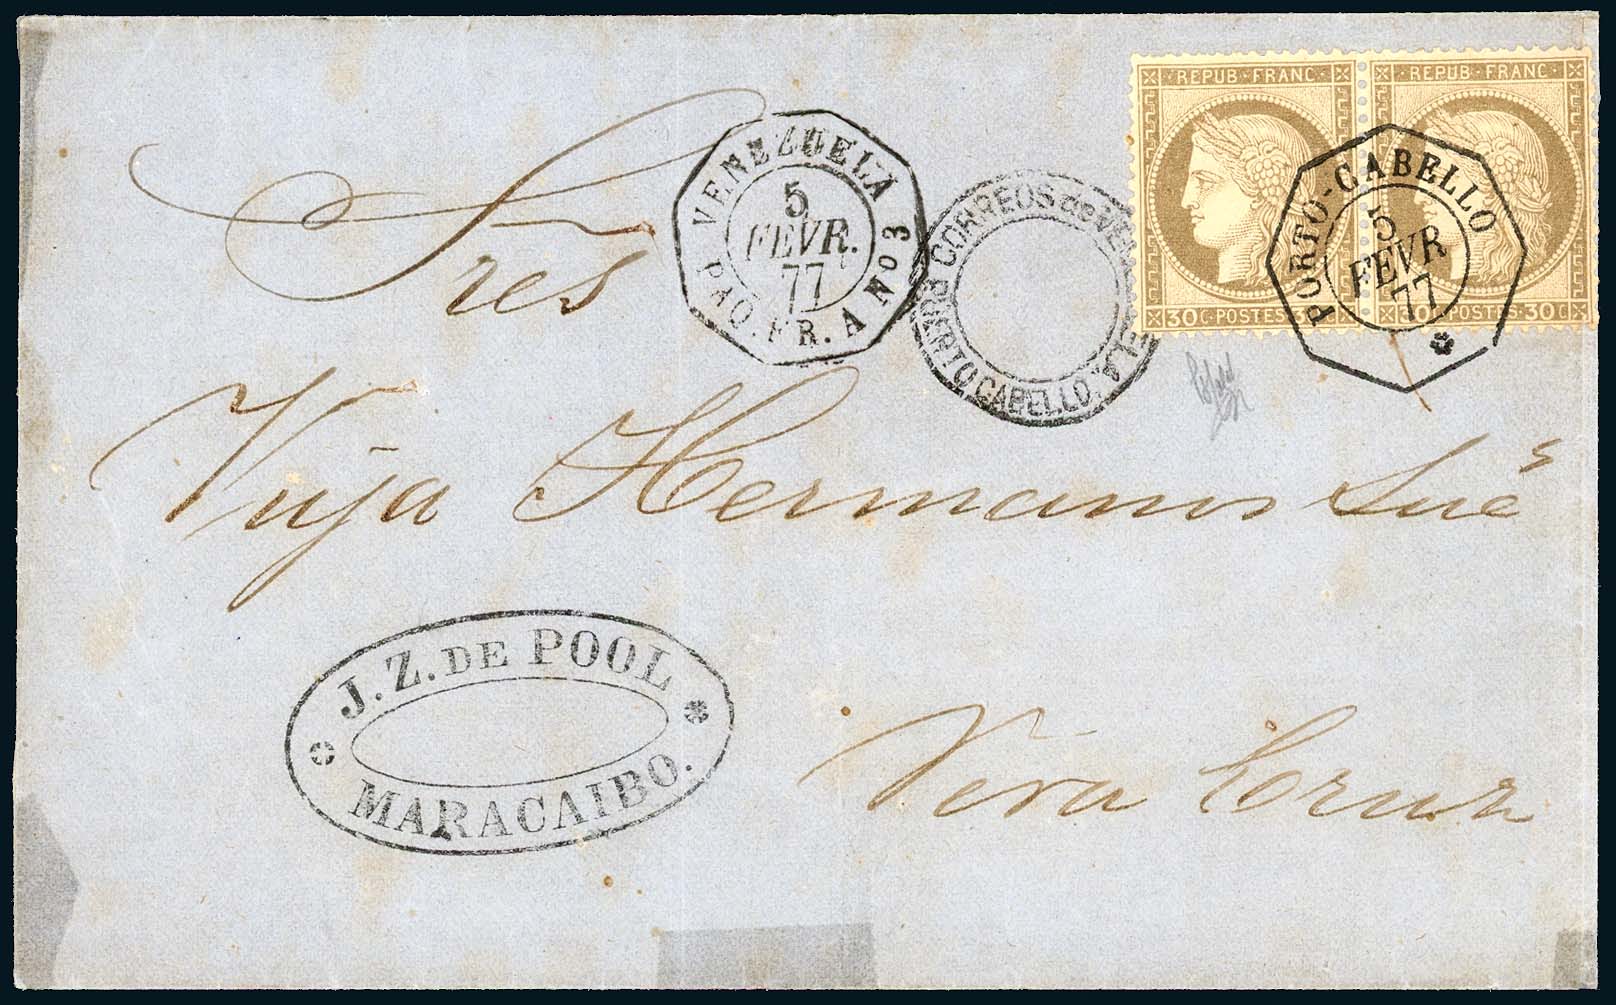 REPUB·FRANC
REPUB·FRANC
30C·POSTES·30C
30C·POSTES·30C
PORTO-CABELLO
5
FEVR
77
VENEZUELA
5
FEVR.
77
PAQ.FR.A No3
CORREOS DE VENEZUELA.
PUERTO CABELLO.
Sres
Vuja Hermanos Suc
Vera Cruz
J. Z. DE POOL
MARACAIBO.